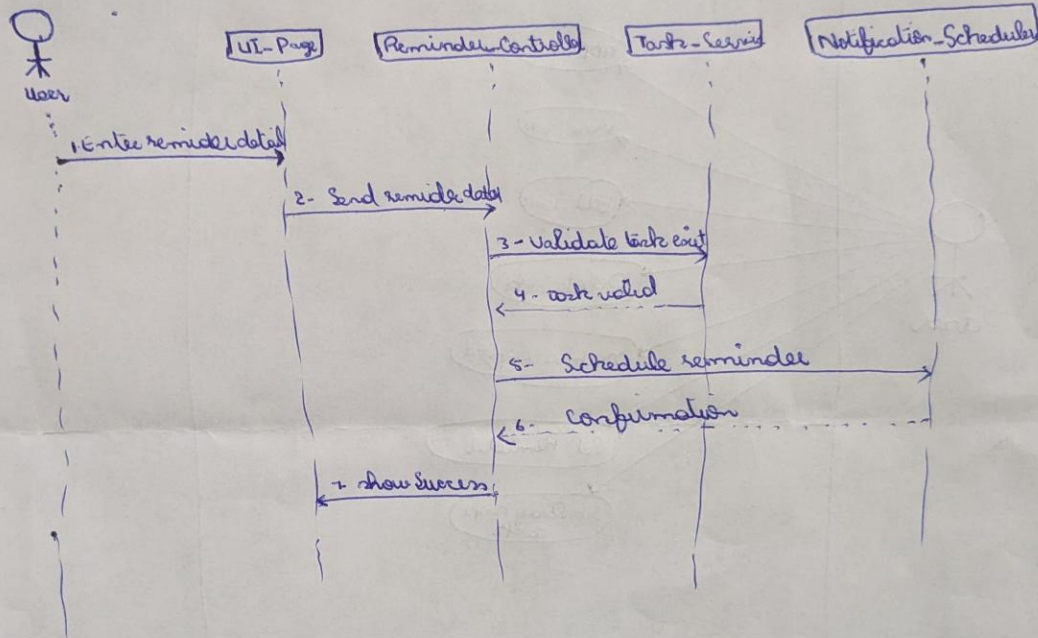 User
UI-Page
Reminder-Controller
Task-Servic
Notification-Scheduler
1. Enter remider detail
2- Send remide data
3- validate task exist
4- task valid
5- Schedule reminder
6- Confirmation
7- show Success